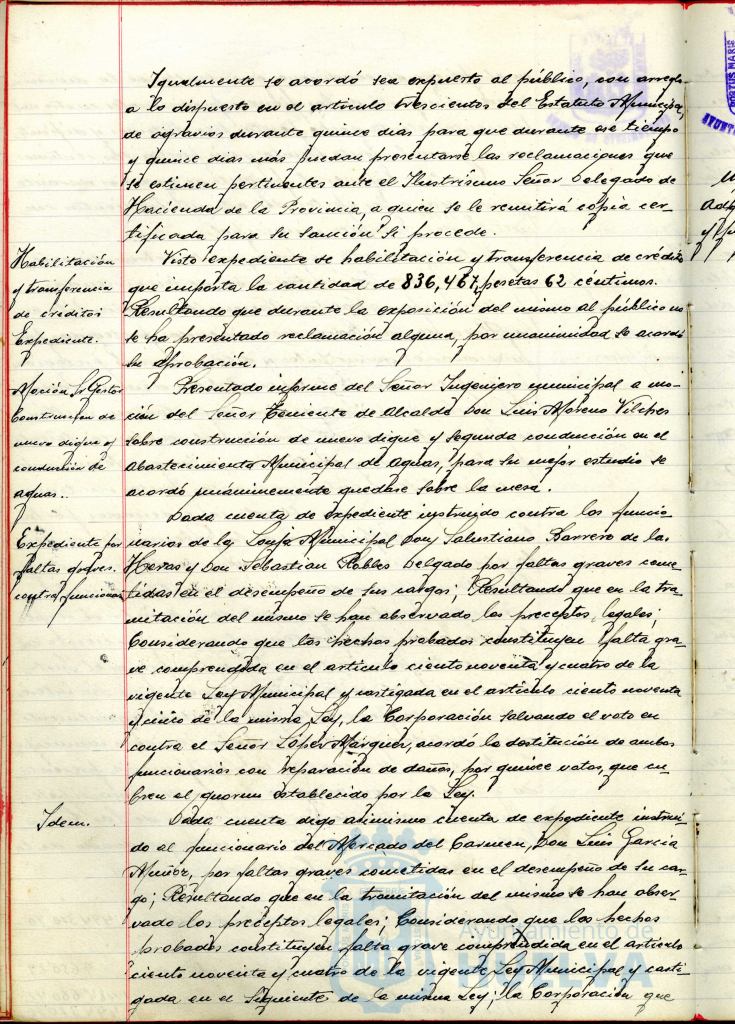 Igualmente se acordó sea expuesto al público, con arreglo
a lo dispuesto en el articulo trescientos del Estatuto Municipal,
de agravios durante quince dias para que durante ese tiempo
y quince dias más puedan presentarse las reclamaciones que
se estimen pertinentes ante el Ilustrisimo Señor Delegado de
Hacienda de la Provincia, a quien se le remitirá copia cer-
tificada para su sanción si procede.
Habilitación
y transferencia
de créditos
Expediente.
Visto expediente de habilitación y transferencia de crédito
que importa la cantidad de 836,467, pesetas 62 céntimos.
Resultando que durante la exposición del mismo al público no
se ha presentado reclamación alguna, por unanimidad se acordó
su aprobación.
Moción Sr Gestor
Construccion de
nuevo dique y
conducción de
aguas..
Presentado informe del Señor Ingeniero municipal a mo-
ción del Señor Teniente de Alcalde Don Luis Moreno Vilches
sobre construcción de nuevo dique y segunda conducción en el
abastecimiento Municipal de Aguas, para su mejor estudio se
acordó unánimemente quedase sobre la mesa.
Expediente por
faltas graves.
contra funcionar
Dada cuenta de expediente instruido contra los funcio-
narios de la Lonja Municipal Don Salustiano Barrero de las
Heras y Don Sebastian Robles Delgado por faltas graves come-
tidas en el desempeño de sus cargos; Resultando que en la tra-
mitación del mismo se han observado los preceptos legales;
Considerando que los hechos probados constituyen falta gra-
ve comprendida en el articulo ciento noventa y cuatro de la
vigente Ley Municipal y castigada en el articulo ciento noventa
y cinco de la misma Ley, la Corporación salvando el voto en
contra el Señor López Márquez, acordó la destitución de ambos
funcionarios con reparación de daños, por quince votos, que cu-
bren el quorum establecido por la Ley.
Idem.
Dada cuenta digo asimismo cuenta de expediente instrui-
do al funcionario del Mercado del Carmen, Don Luis Garcia
Muñoz, por faltas graves cometidas en el desempeño de su car-
go; Resultando que en la tramitación del mismo se han obser-
vado los preceptos legales; Considerando que los hechos
probados constituyen falta grave comprendida en el articulo
ciento noventa y cuatro de la vigente Ley Municipal y casti-
gada en el siguiente de la misma Ley; la Corporación que
Ayuntamiento de
HUELVA